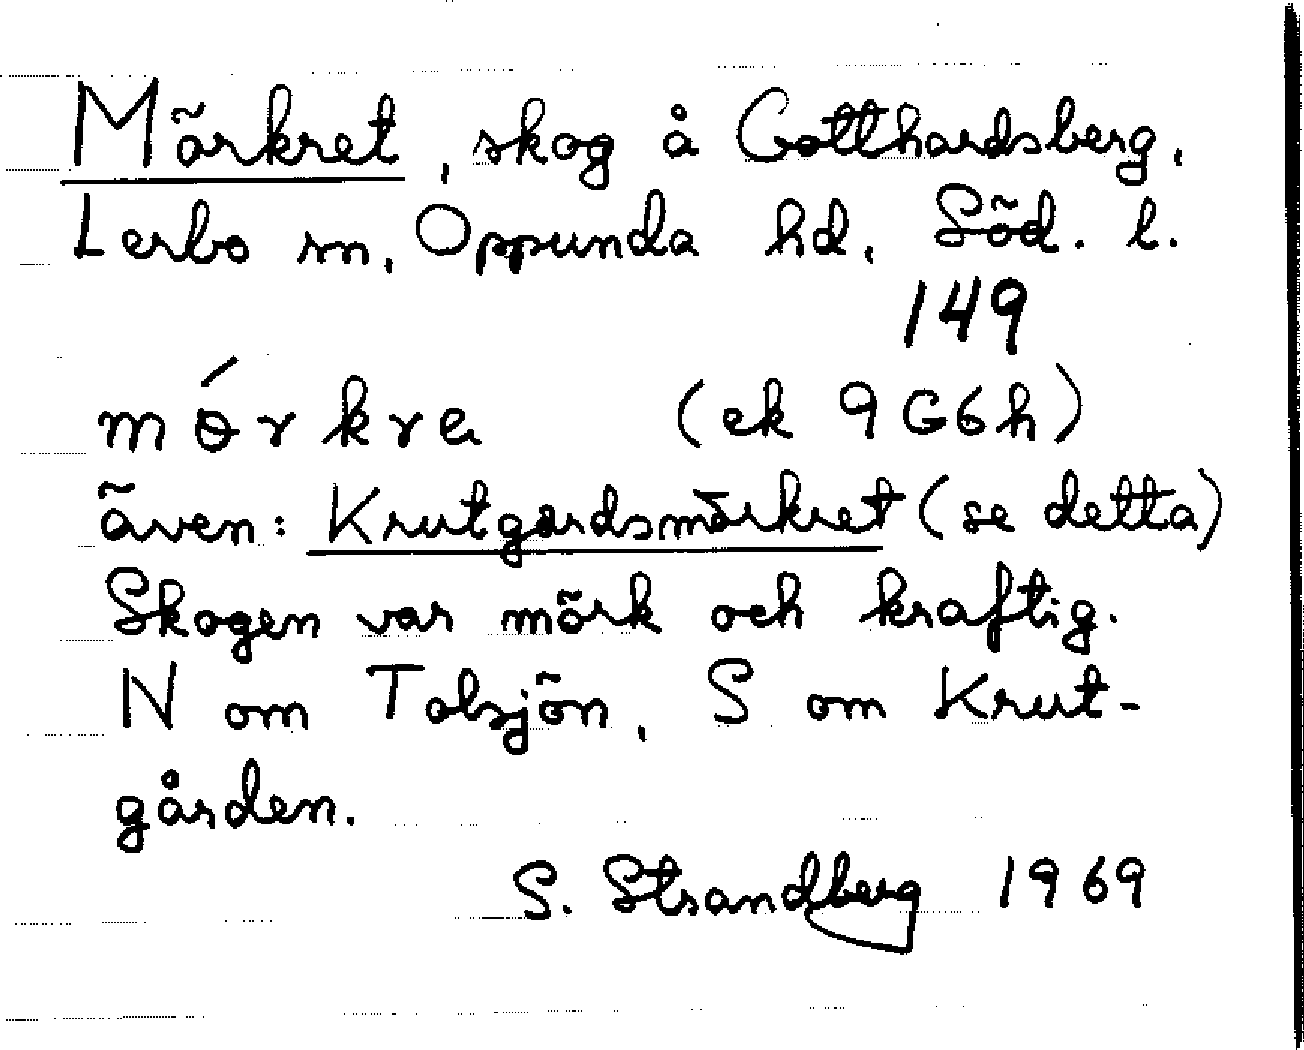 Mörkret, skog å Gotthardsberg,
Lerbo sn, Oppunda hd, Söd. l.
149
mǿrkra (ek 9G6h)
även: Krutgårdsmörkret (se detta)
Skogen var mörk och kraftig.
N om Tolsjön, S om Krut-
gården.
S. Strandberg 1969